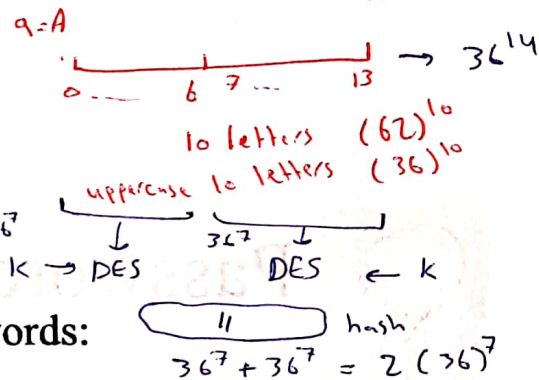 a=A
→ 36^14
0 .... 6 7 ... 13
10 letters (62)^10
uppercase 10 letters (36)^10
6^7 36^7
K → DES DES ← K
words: || hash
36^7 + 36^7 = 2 (36)^7